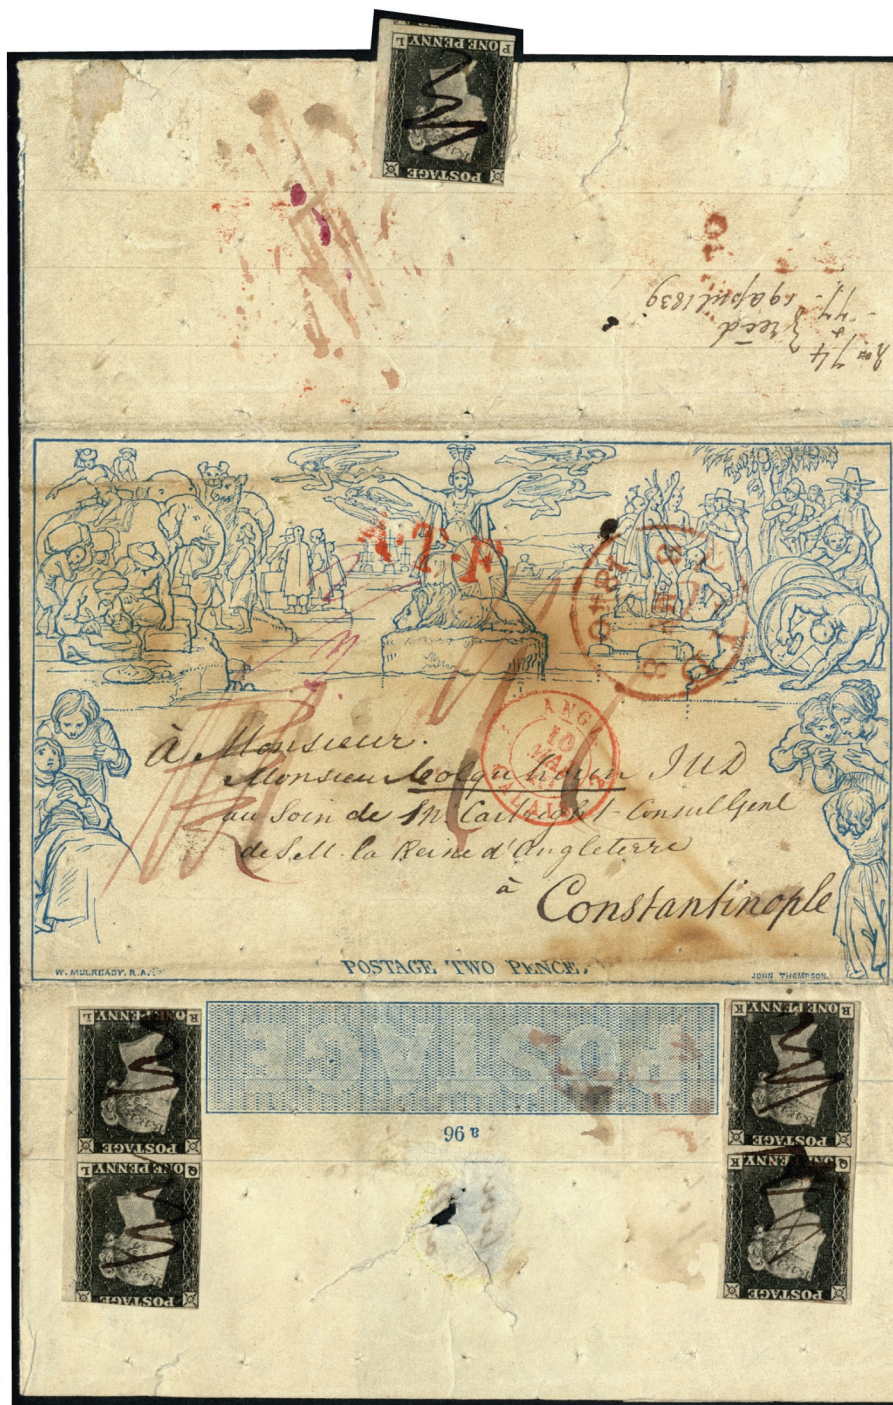 P ONE PENNY L
POSTAGE
19 april 1839
1840
ANGL.
10
MAI
CALAIS
2
à Monsieur.
Monsieur Colquhoun JUD
au Soin de Mr. Cartright - Consul Genl
de S.M. la Reine d'Angleterre
à Constantinople
W. MULREADY. R.A.
POSTAGE TWO PENCE.
JOHN THOMPSON.
R ONE PENNY L
POSTAGE
Q ONE PENNY L
POSTAGE
POSTAGE
a 96
R ONE PENNY K
POSTAGE
Q ONE PENNY K
POSTAGE